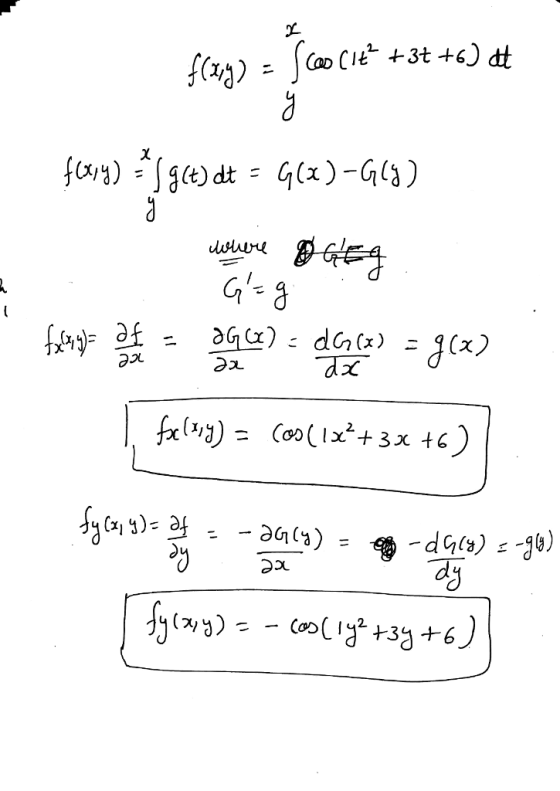 f(x,y) = ∫_y^x cos(1t² + 3t + 6) dt
f(x,y) = ∫_y^x g(t) dt = G(x) - G(y)
where
G' = g
f_x(x,y) = ∂f/∂x = ∂G(x)/∂x = dG(x)/dx = g(x)
f_x(x,y) = cos(1x² + 3x + 6)
f_y(x,y) = ∂f/∂y = -∂G(y)/∂x = -dG(y)/dy = -g(y)
f_y(x,y) = - cos(1y² + 3y + 6)